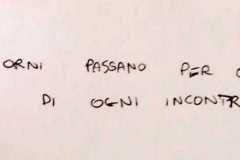 ORNI PASSANO PER
DI OGNI INCONTR